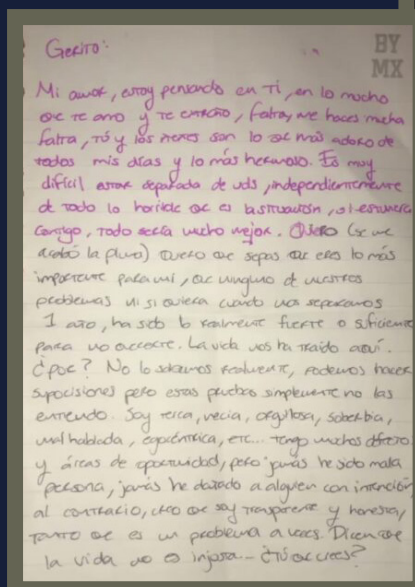 BY
MX
Gerito:
Mi amor, estoy pensando en Ti, en lo mucho
que te amo y te extraño, falta, me haces mucha
falta, Tú y los nenes son lo que más adoro de
todos mis días y lo más hermoso. Es muy
difícil estar separada de uds, independientemente
de todo lo horrible que es la situación, si estuviera
contigo, todo sería mucho mejor. Quiero (se me
acabó la pluma) Quiero que sepas que eres lo más
importante para mi, que ninguno de nuestros
problemas ni si quiera cuando nos separamos
1 año, ha sido lo realmente fuerte o suficiente
para no quererte. La vida nos ha traído aquí.
No lo sabemos realmente, podemos hacer
suposiciones pero estas pruebas simplemente no las
entiendo. Soy terca, necia, orgullosa, soberbia,
mal hablada, egocéntrica, etc... Tengo muchos
y áreas de oportunidad, pero jamás he sido mala
persona, jamás he dañado a alguien con intención
al contrario, creo que soy transparente y honesta,
tanto que es un problema a veces. Dicen que
la vida no es injusta... ¿Tú que crees?